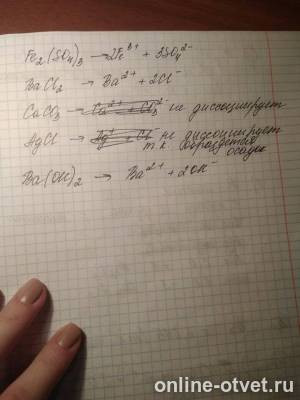 Fe₂(SO₄)₃ → 2Fe³⁺ + 3SO₄²⁻
BaCl₂ → Ba²⁺ + 2Cl⁻
CaCO₃ → не диссоциирует
AgCl → не диссоциирует
т.к. образуется
осадок
Ba(OH)₂ → Ba²⁺ + 2OH⁻
online-otvet.ru